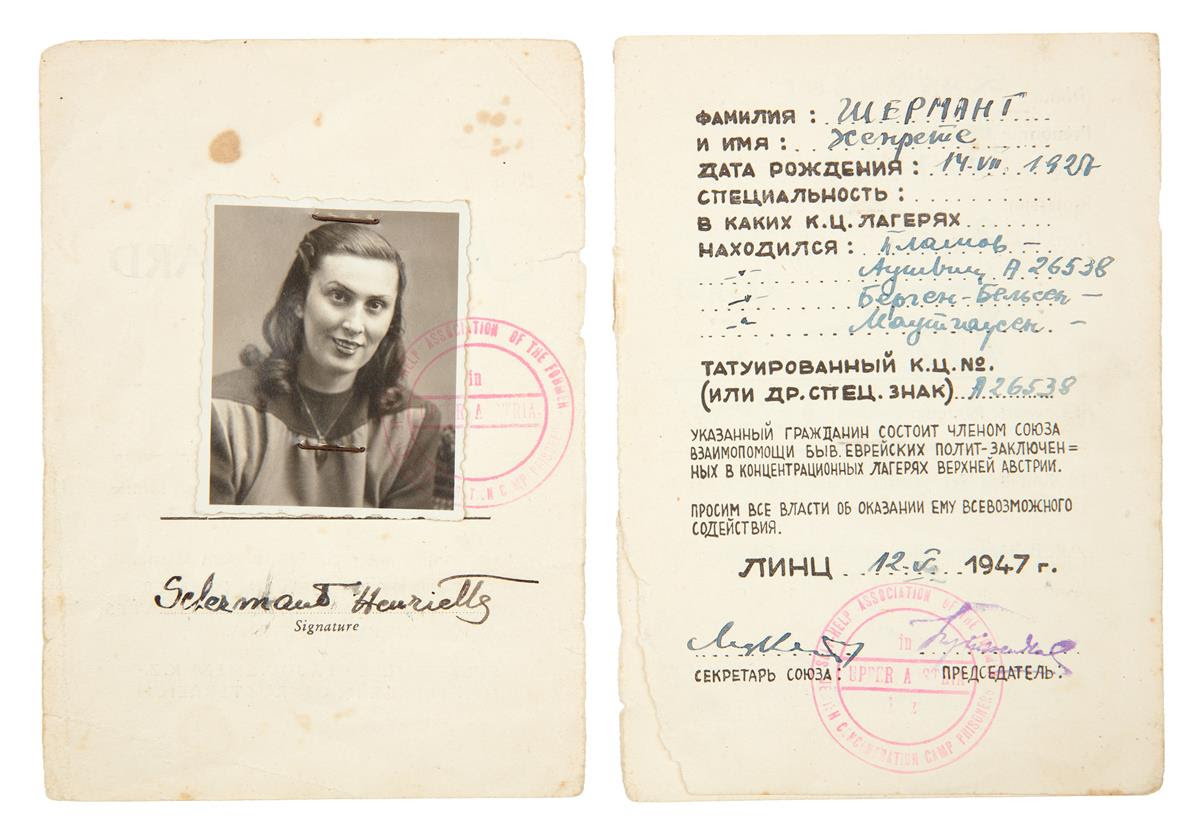 HELP ASSOCIATION OF THE FORMER
in
UPPER AUSTRIA
CAMP PRISONERS
Schermant Henriette
Signature
ФАМИЛИЯ : ШЕРМАНТ
И ИМЯ : Хенрете
ДАТА РОЖДЕНИЯ : 14-VII 1927
СПЕЦИАЛЬНОСТЬ :
В КАКИХ К.Ц. ЛАГЕРЯХ
НАХОДИЛСЯ : Плашов -
-"- Аушвиц А 26538
-"- Берген-Бельсен -
-"- Маутгаусен. -
ТАТУИРОВАННЫЙ К.Ц. №.
(ИЛИ ДР. СПЕЦ. ЗНАК) А 26538
УКАЗАННЫЙ ГРАЖДАНИН СОСТОИТ ЧЛЕНОМ СОЮЗА
ВЗАИМОПОМОЩИ БЫВ. ЕВРЕЙСКИХ ПОЛИТ-ЗАКЛЮЧЕН=
НЫХ В КОНЦЕНТРАЦИОННЫХ ЛАГЕРЯХ ВЕРХНЕЙ АВСТРИИ.
ПРОСИМ ВСЕ ВЛАСТИ ОБ ОКАЗАНИИ ЕМУ ВСЕВОЗМОЖНОГО
СОДЕЙСТВИЯ.
ЛИНЦ 12-V. 1947 г.
HELP ASSOCIATION OF THE
in
UPPER AUSTRIA
CONCENTRATION CAMP PRISONERS
СЕКРЕТАРЬ СОЮЗА : ПРЕДСЕДАТЕЛЬ :